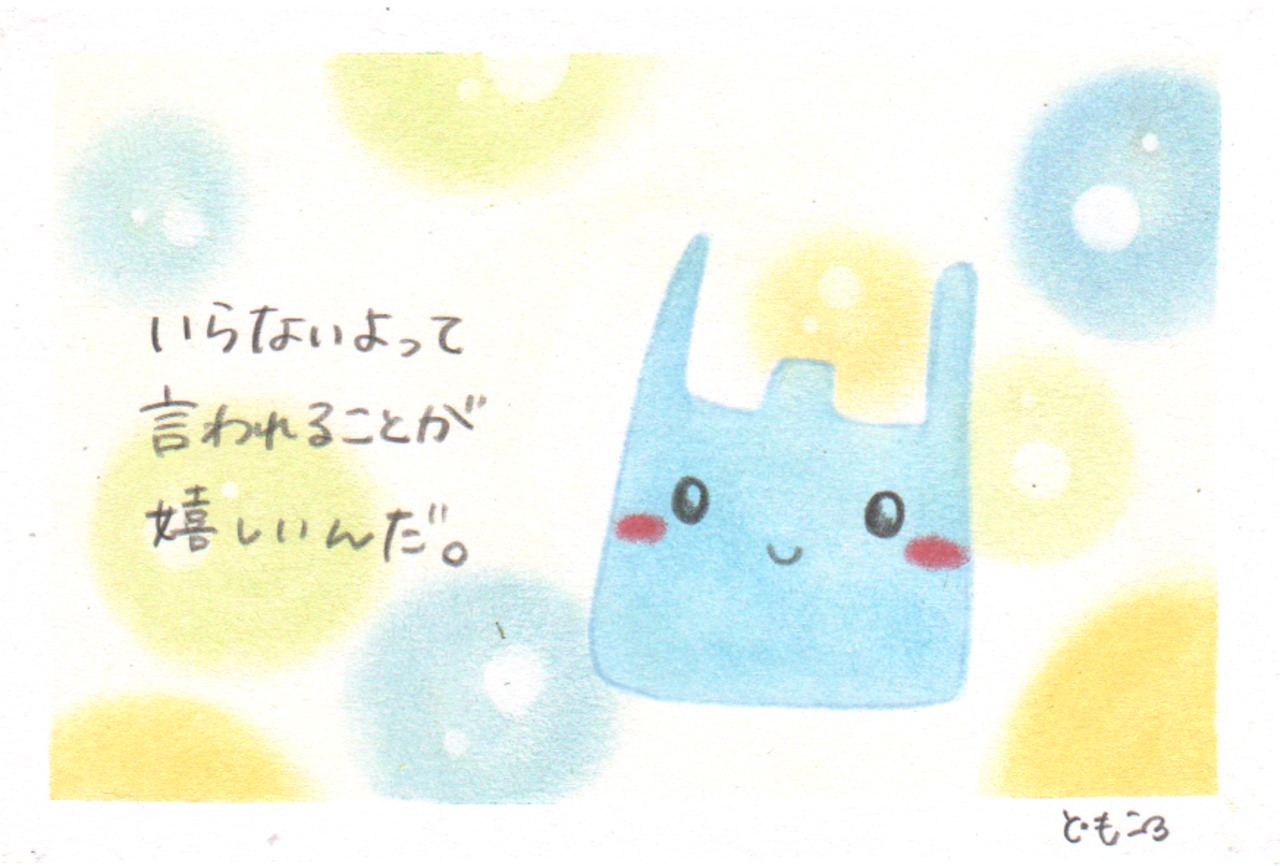 いらないよって
言われることが
嬉しいんだ。
ともころ